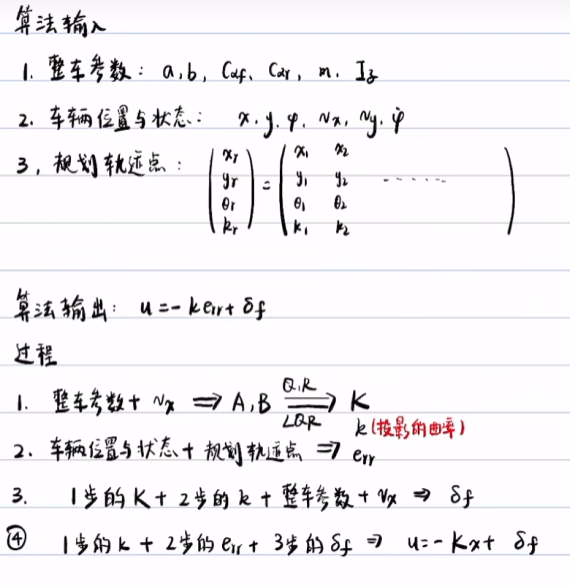 算法输入
1. 整车参数: a,b, Cαf、Cαr, m. Iz
2. 车辆位置与状态: x. y. φ. vx, vy. φ̇
3, 规划轨迹点:
(xr yr θr kr) = (x1 x2 y1 y2 θ1 θ2 k1 k2 ------)
算法输出: u=-kerr+δf
过程
1. 整车参数+ vx ⇒ A,B Q.R ⇒ LQR K
k(投影的曲率)
2、车辆位置与状态+ 规划轨迹点 ⇒ err
3. 1步的K+2步的k+整车参数+vx ⇒ δf
④ 1步的k+2步的err+3步的δf ⇒ u=-Kx+ δf